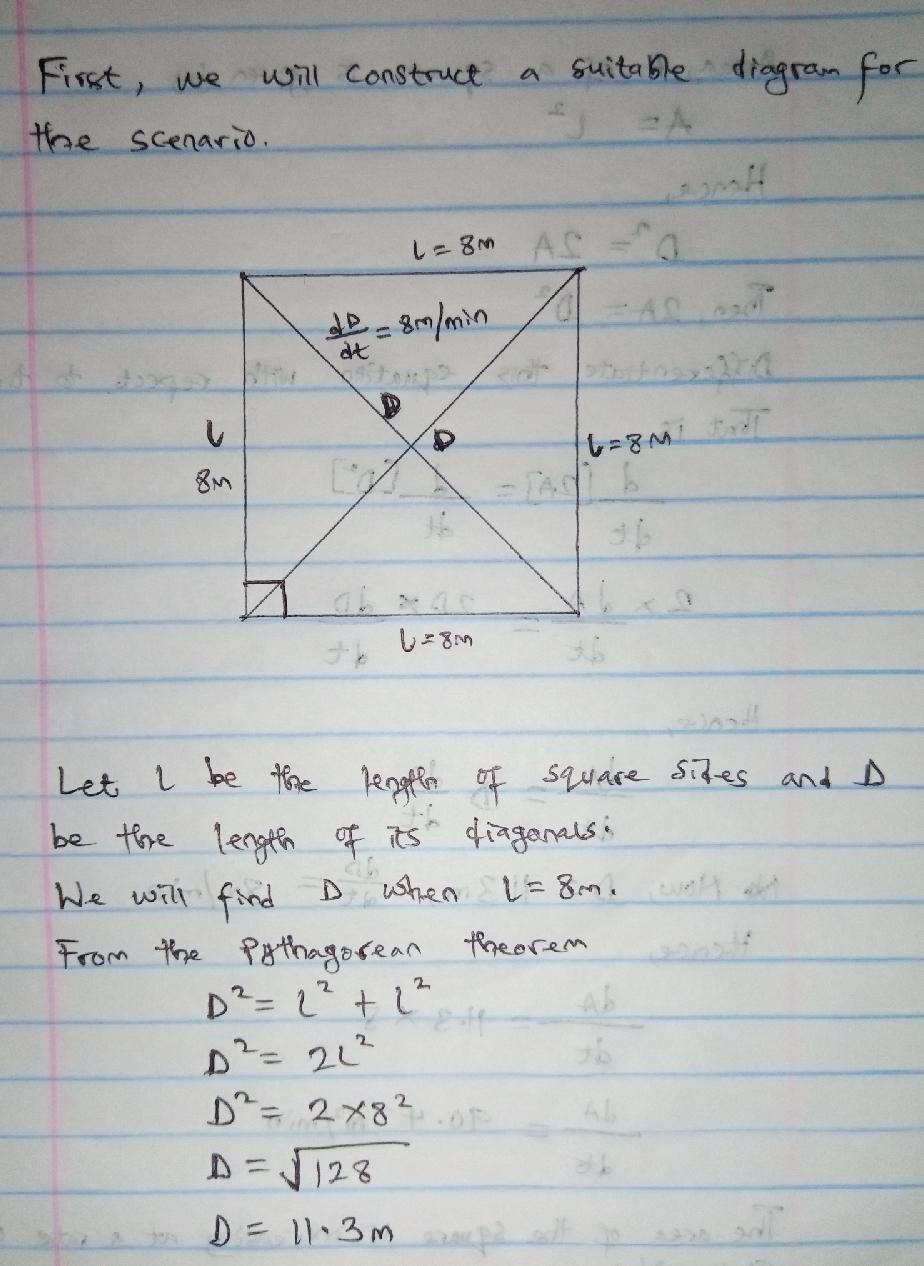 First, we will construct a suitable diagram for
the scenario.
l = 8m
dD/dt = 8m/min
D
D
l
8m
l = 8m
l = 8m
Let l be the length of square sides and D
be the length of its diagonals.
We will find D when l = 8m.
From the Pythagorean theorem
D² = l² + l²
D² = 2l²
D² = 2 × 8²
D = √128
D = 11.3m